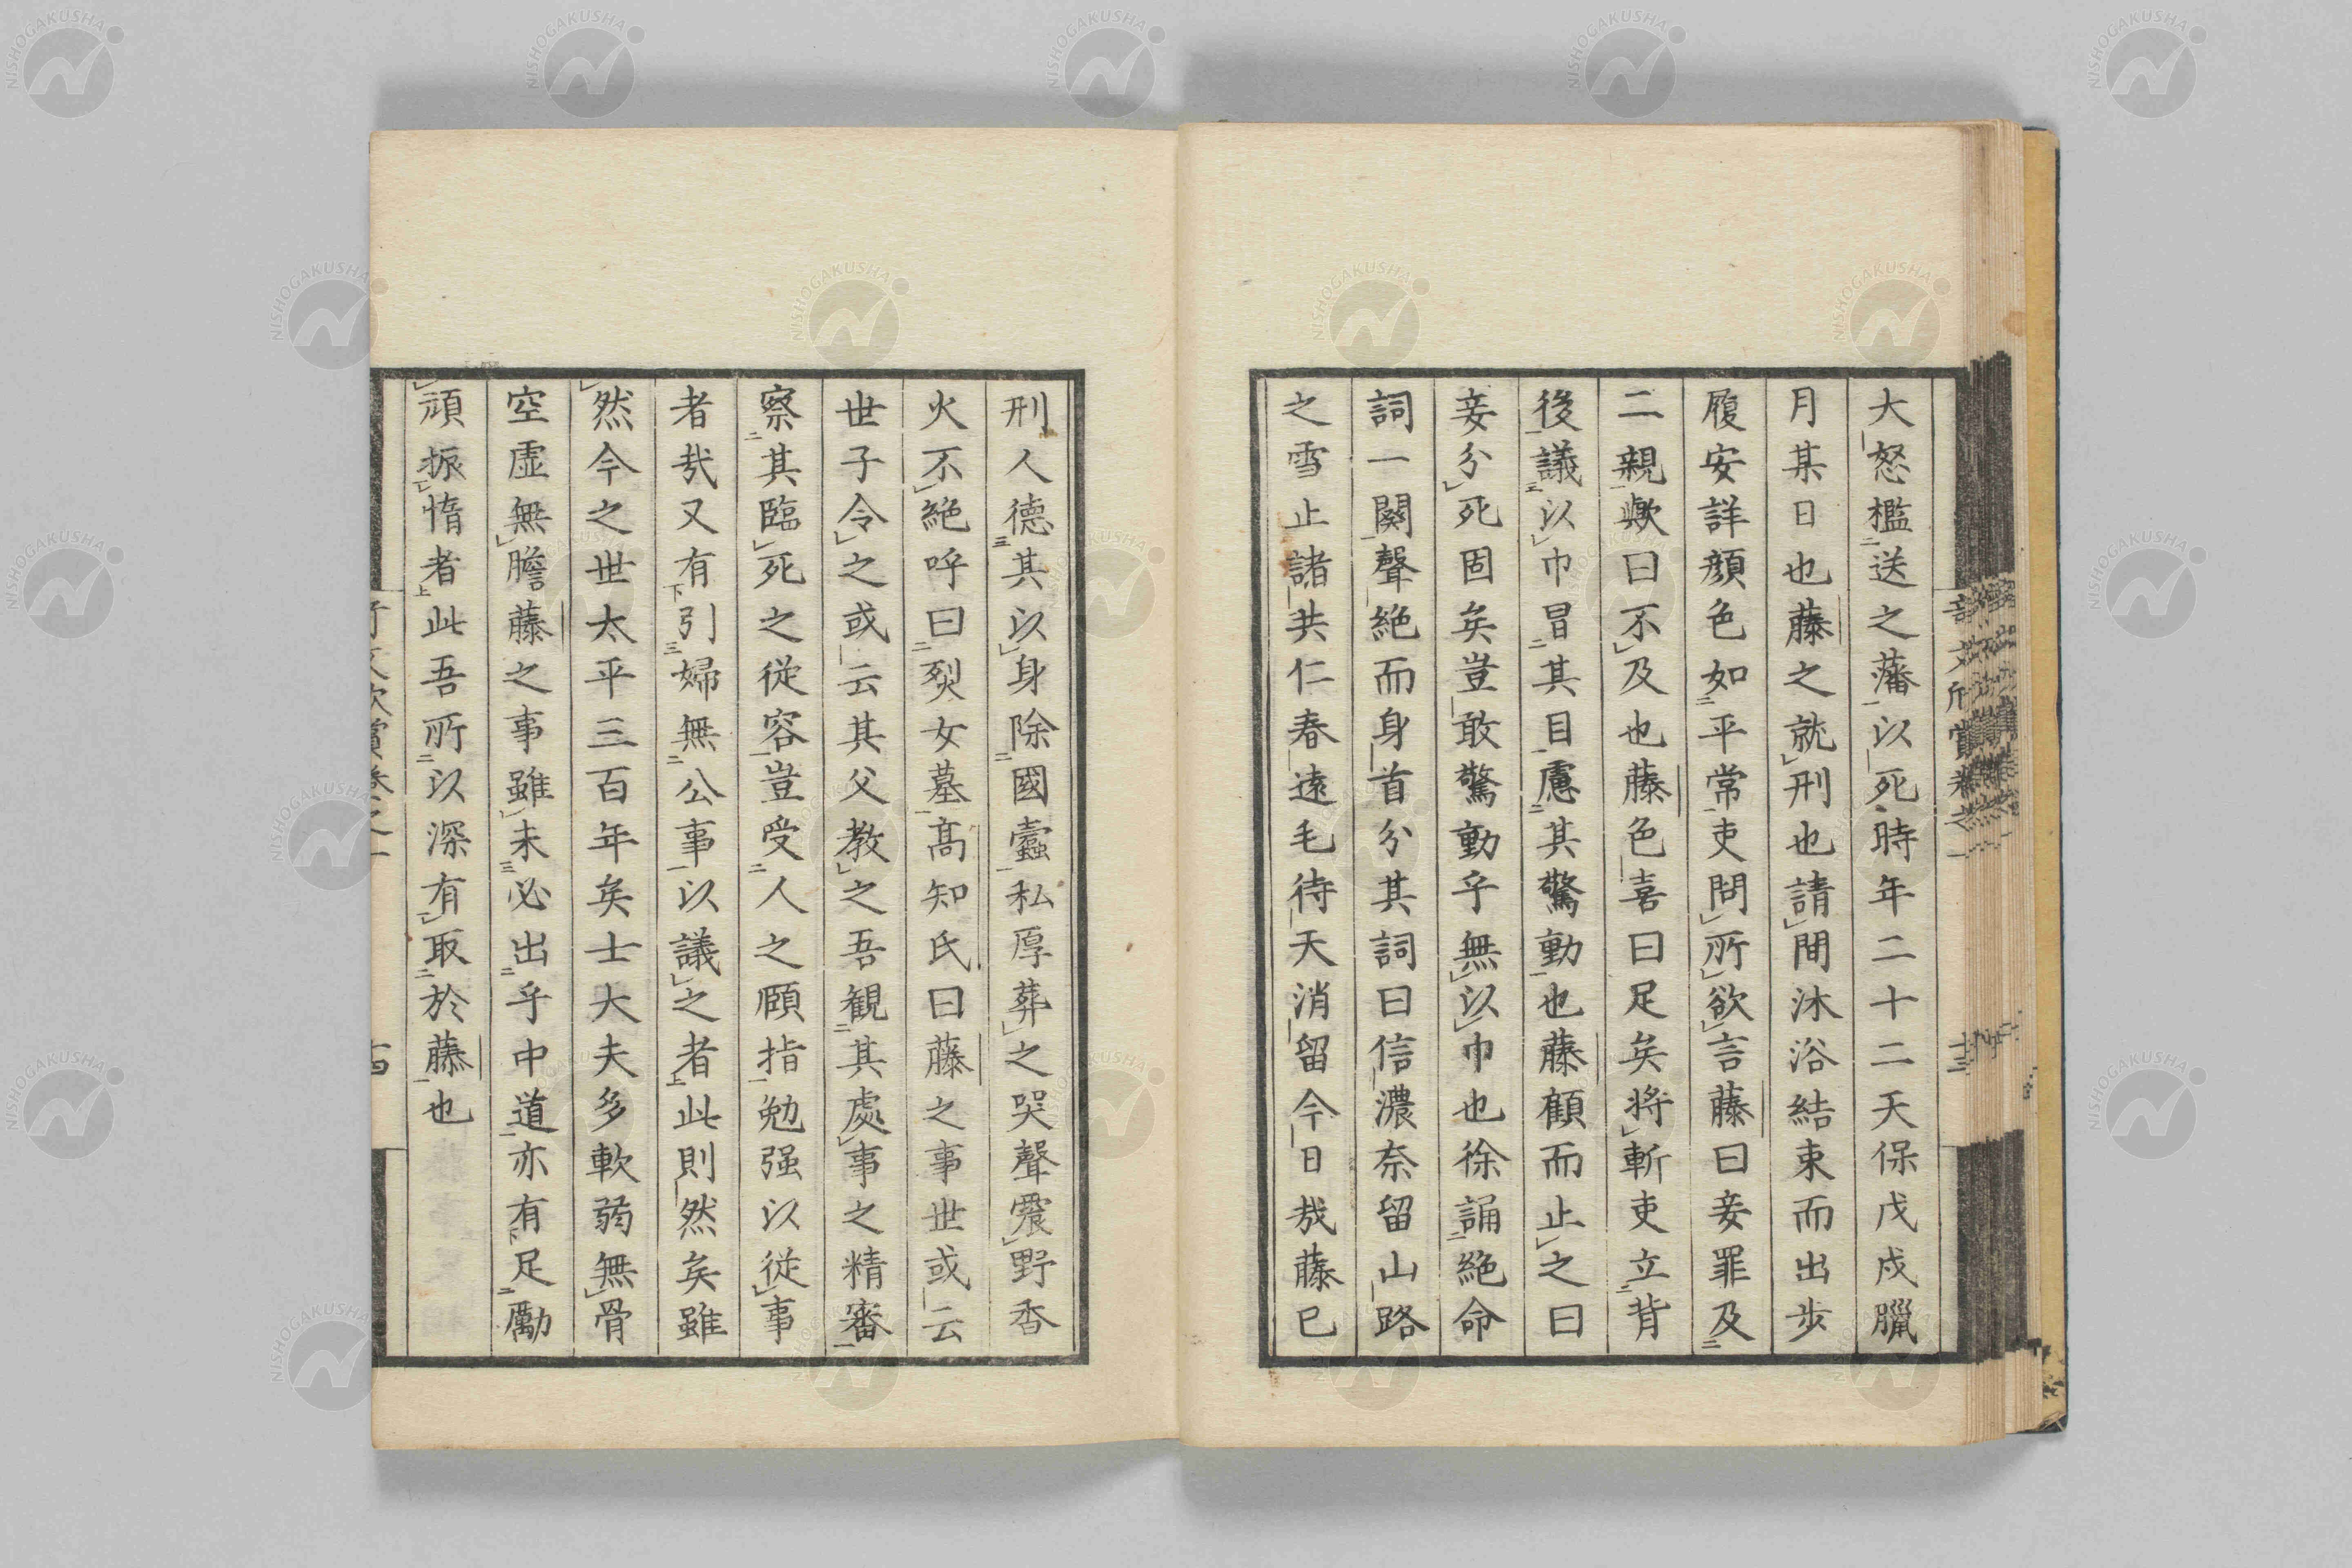 大怒檻送之藩以死時年二十二天保戊戌臘
月某日也藤之就刑也請間沐浴結束而出步
履安詳顏色如平常吏問所欲言藤曰妾罪及
二親歟曰不及也藤色喜曰足矣將斬吏立背
後議以巾冒其目慮其驚動也藤顧而止之曰
妾分死固矣豈敢驚動乎無以巾也徐誦絕命
詞一闋聲絕而身首分其詞曰信濃奈留山路
之雪止諸共仁春遠毛待天消留今日哉藤已
刑人德其以身除國蠧私厚葬之哭聲震野香
火不絕呼曰烈女墓高知氏曰藤之事世或云
世子令之或云其父教之吾観其處事之精審
察其臨死之從容豈受人之頤指勉强以從事
者哉又有引婦無公事以議之者此則然矣雖
然今之世太平三百年矣士大夫多軟弱無骨
空虛無膽藤之事雖未必出乎中道亦有足勵
頑振惰者此吾所以深有取於藤也
十三
NISHOGAKUSHA